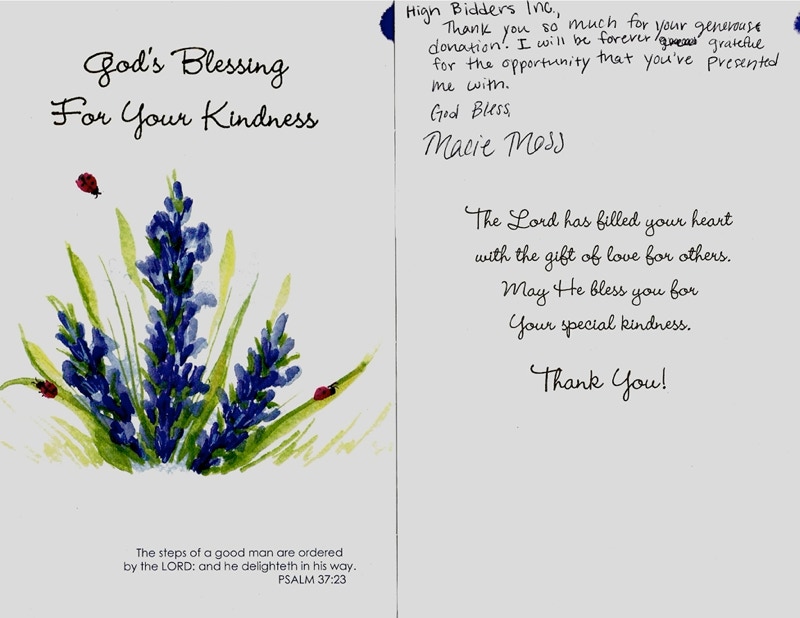 God's Blessing
For Your Kindness
The steps of a good man are ordered
by the LORD: and he delighteth in his way.
PSALM 37:23
High Bidders Inc.,
Thank you so much for your generous
donation! I will be forever grateful
for the opportunity that you've presented
me with.
God Bless,
Macie Moss
The Lord has filled your heart
with the gift of love for others.
May He bless you for
Your special kindness.
Thank You!